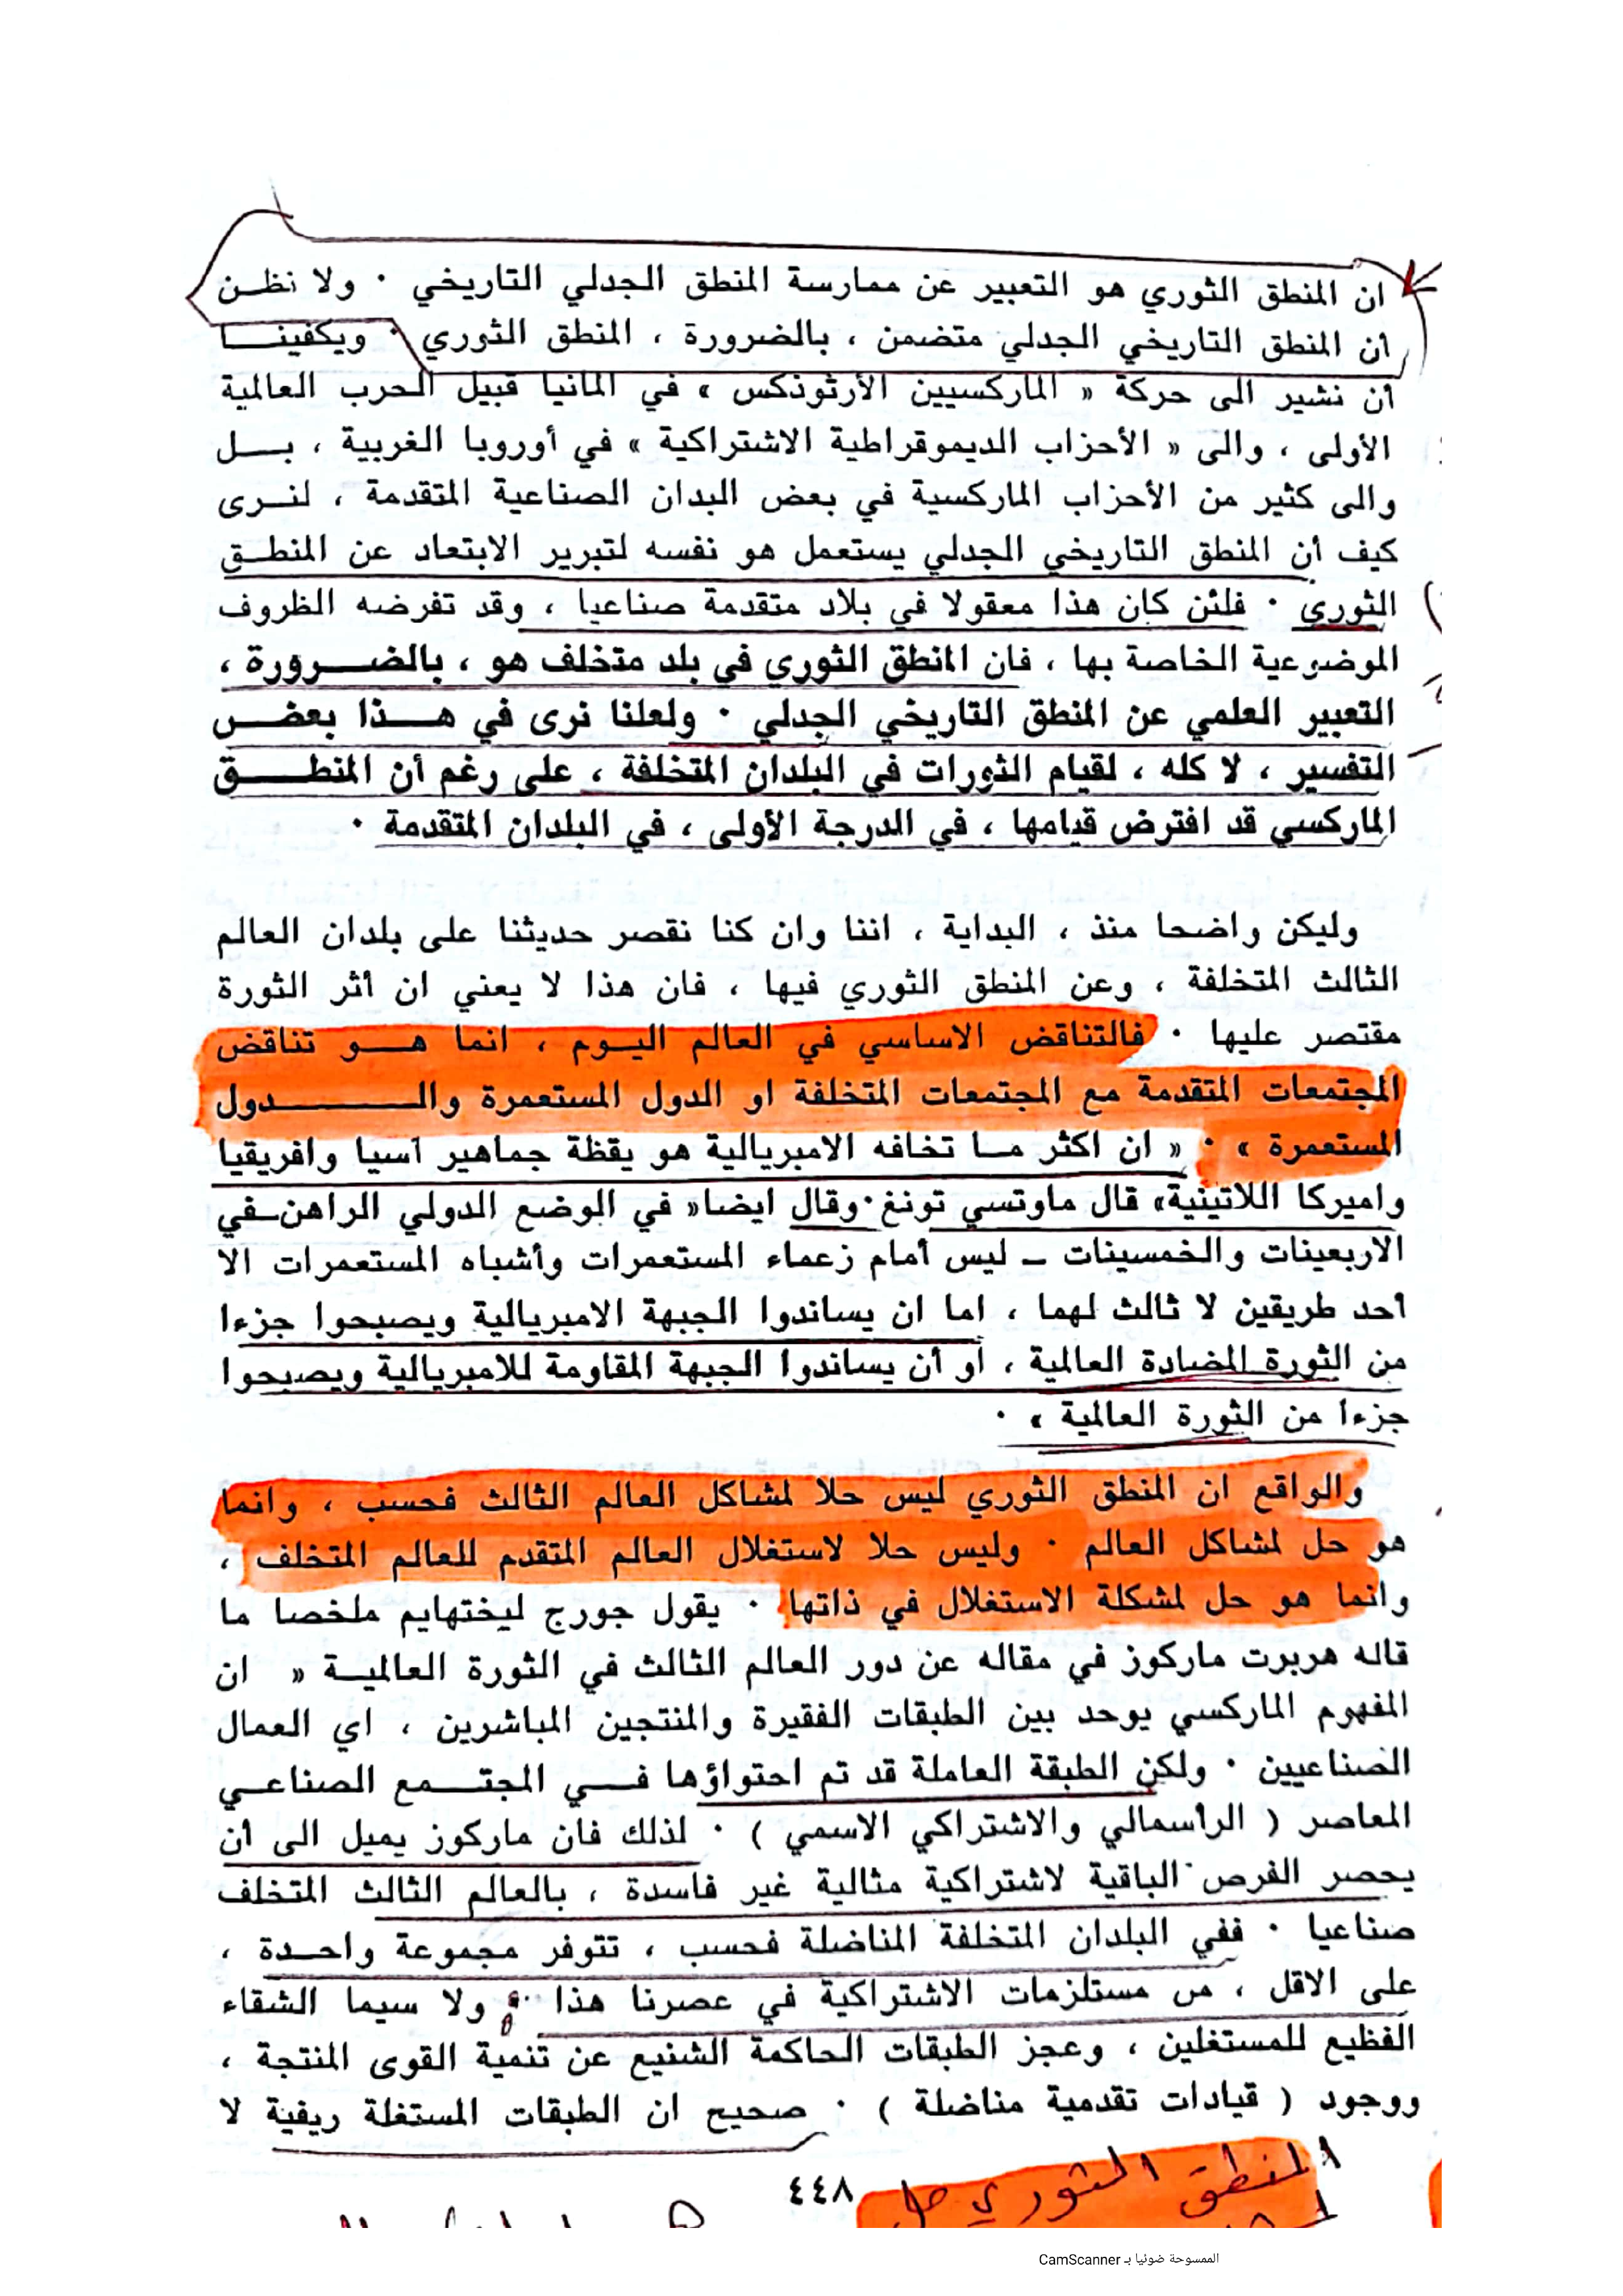 ان المنطق الثوري هو التعبير عن ممارسة المنطق الجدلي التاريخي ٠ ولا نظـن
ان المنطق التاريخي الجدلي متضمن ، بالضرورة ، المنطق الثوري ٠ ويكفينـــا
أن نشير الى حركة « الماركسيين الأرثوذكس » في المانيا قبيل الحرب العالمية
الأولى ، والى « الأحزاب الديموقراطية الاشتراكية » في أوروبا الغربية ، بــل
والى كثير من الأحزاب الماركسية في بعض البدان الصناعية المتقدمة ، لنـرى
كيف أن المنطق التاريخي الجدلي يستعمل هو نفسه لتبرير الابتعاد عن المنطـق
الثوري ٠ فلئن كان هذا معقولا في بلاد متقدمة صناعيا ، وقد تفرضه الظروف
الموضوعية الخاصة بها ، فان المنطق الثوري في بلد متخلف هو ، بالضـــرورة ،
التعبير العلمي عن المنطق التاريخي الجدلي ٠ ولعلنا نرى في هـــذا بعـض
التفسير ، لا كله ، لقيام الثورات في البلدان المتخلفة ، على رغم أن المنطــــق
الماركسي قد افترض قيامها ، في الدرجة الأولى ، في البلدان المتقدمة ٠
وليكن واضحا منذ ، البداية ، اننا وان كنا نقصر حديثنا على بلدان العالم
الثالث المتخلفة ، وعن المنطق الثوري فيها ، فان هذا لا يعني ان أثر الثورة
مقتصر عليها ٠ فالتناقض الاساسي في العالم اليـوم ، انما هـــو تناقض
المجتمعات المتقدمة مع المجتمعات المتخلفة او الدول المستعمرة والـــــــدول
المستعمرة » ٠ « ان اكثر مـا تخافه الامبريالية هو يقظة جماهير آسيا وافريقيا
واميركا اللاتينية» قال ماوتسي تونغ٠وقال ايضا« في الوضع الدولي الراهن ـ في
الاربعينات والخمسينات ـ ليس أمام زعماء المستعمرات وأشباه المستعمرات الا
أحد طريقين لا ثالث لهما ، اما ان يساندوا الجبهة الامبريالية ويصبحوا جزءا
من الثورة المضادة العالمية ، أو أن يساندوا الجبهة المقاومة للامبريالية ويصبحوا
جزءا من الثورة العالمية » ٠
والواقع ان المنطق الثوري ليس حلا لمشاكل العالم الثالث فحسب ، وانما
هو حل لمشاكل العالم ٠ وليس حلا لاستغلال العالم المتقدم للعالم المتخلف ،
وانما هو حل لمشكلة الاستغلال في ذاتها ٠ يقول جورج ليختهايم ملخصا ما
قاله هربرت ماركوز في مقاله عن دور العالم الثالث في الثورة العالميـة « ان
المفهوم الماركسي يوحد بين الطبقات الفقيرة والمنتجين المباشرين ، اي العمال
الصناعيين ٠ ولكن الطبقة العاملة قد تم احتواؤها فـــي المجتـــمع الصناعـي
المعاصر ( الرأسمالي والاشتراكي الاسمي ) ٠ لذلك فان ماركوز يميل الى أن
يحصر الفرص الباقية لاشتراكية مثالية غير فاسدة ، بالعالم الثالث المتخلف
صناعيا ٠ ففي البلدان المتخلفة المناضلة فحسب ، تتوفر مجموعة واحـدة ،
على الاقل ، من مستلزمات الاشتراكية في عصرنا هذا ولا سيما الشقاء
الفظيع للمستغلين ، وعجز الطبقات الحاكمة الشنيع عن تنمية القوى المنتجة ،
ووجود ( قيادات تقدمية مناضلة ) ٠ صحيح ان الطبقات المستغلة ريفية لا
٤٤٨
المنطق الثوري حل
الممسوحة ضوئيا بـ CamScanner